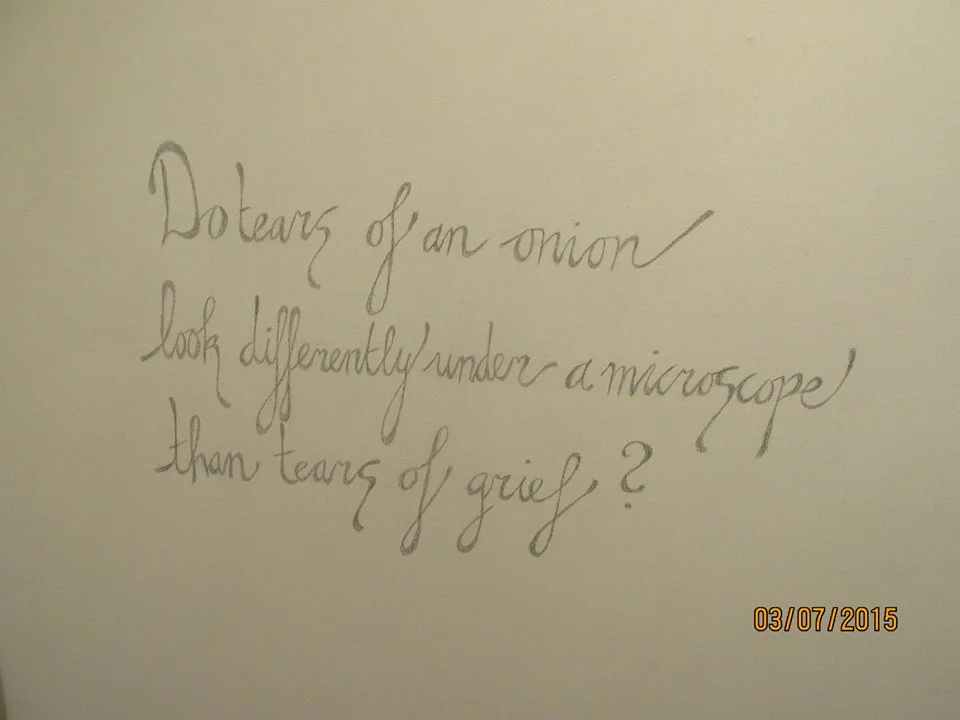 Do tears of an onion
look differently under a microscope
than tears of grief ?
03/07/2015